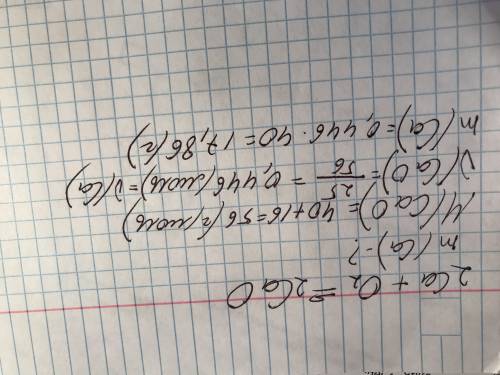 2Ca + O₂ = 2CaO
m(Ca) - ?
M(CaO) = 40+16=56 (г/моль)
ν(CaO) = 25/56 = 0,446 (моль) = ν(Ca)
m(Ca) = 0,446 · 40 = 17,86 (г)